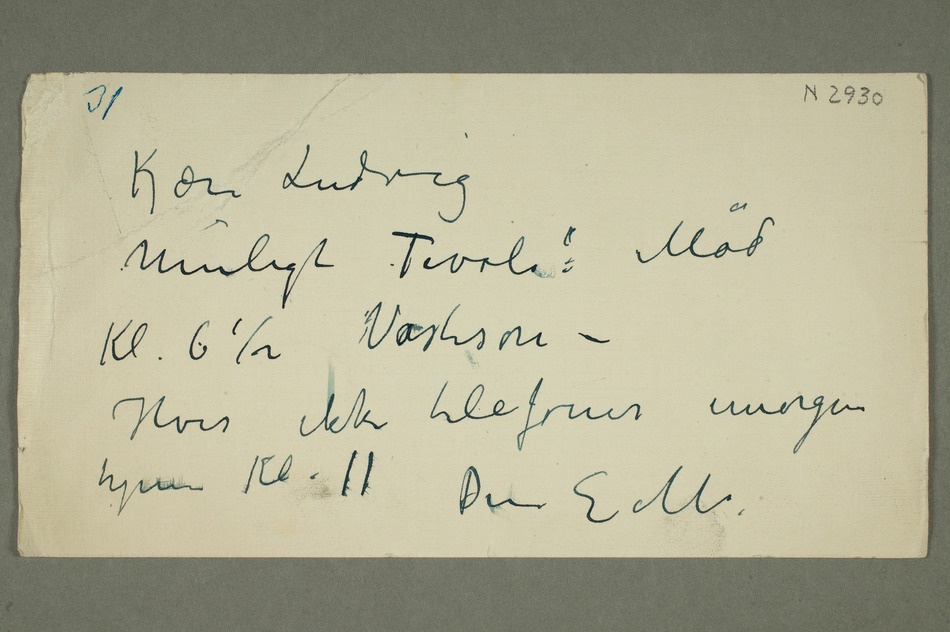 31
N 2930
Kjære Ludvig
Muligt Tivoli: Möd
Kl. 6 1/2
Hvis ikke telefoner imorgen
hjem Kl. 11 Din E M.